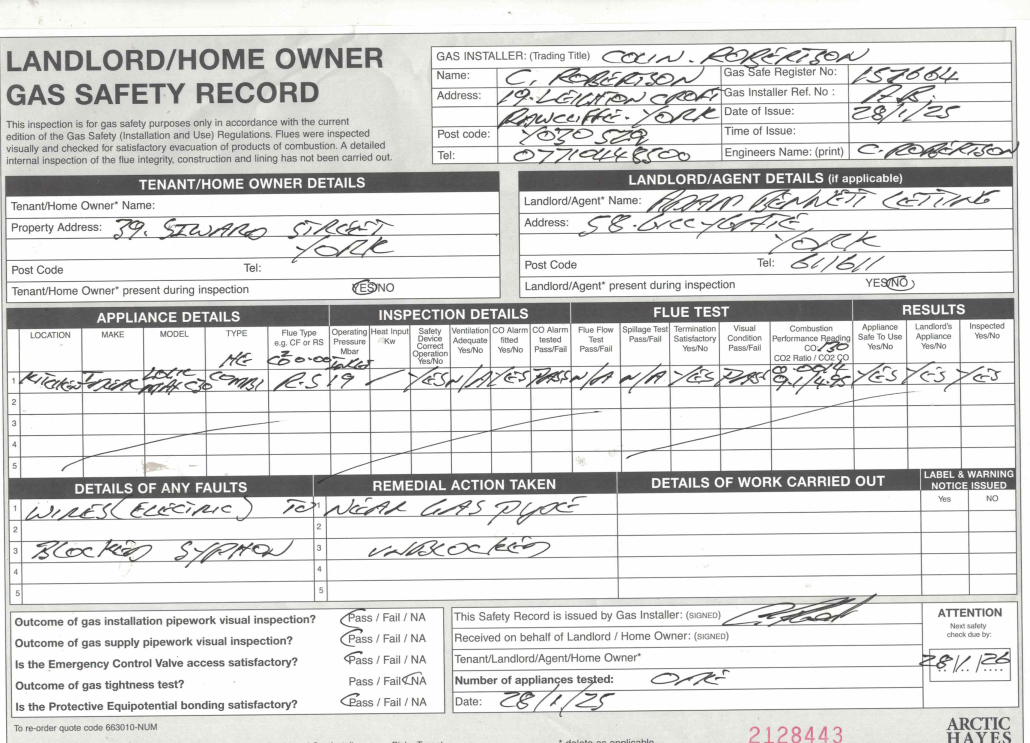 LANDLORD/HOME OWNER
GAS SAFETY RECORD
This inspection is for gas safety purposes only in accordance with the current
edition of the Gas Safety (Installation and Use) Regulations. Flues were inspected
visually and checked for satisfactory evacuation of products of combustion. A detailed
internal inspection of the flue integrity, construction and lining has not been carried out.
GAS INSTALLER: (Trading Title) COLIN. ROBERTSON
Name: C. ROBERTSON Gas Safe Register No: 157664
Address: 19. CROFT Gas Installer Ref. No :
RAWCLIFFE. YORK Date of Issue: 28/1/25
Post code: YO30 Time of Issue:
Tel: Engineers Name: (print) C. ROBERTSON
TENANT/HOME OWNER DETAILS
Tenant/Home Owner* Name:
Property Address: 39. SIWARD STREET
YORK
Post Code Tel:
Tenant/Home Owner* present during inspection YES/NO
LANDLORD/AGENT DETAILS (if applicable)
Landlord/Agent* Name: ADAM BENNETT LETTING
Address: 58.
YORK
Post Code Tel: 611611
Landlord/Agent* present during inspection YES/NO
APPLIANCE DETAILS INSPECTION DETAILS FLUE TEST RESULTS
LOCATION MAKE MODEL TYPE Flue Type e.g. CF or RS Operating Pressure Mbar Heat Input Kw Safety Device Correct Operation Yes/No Ventilation Adequate Yes/No CO Alarm fitted Yes/No CO Alarm tested Pass/Fail Flue Flow Test Pass/Fail Spillage Test Pass/Fail Termination Satisfactory Yes/No Visual Condition Pass/Fail Combustion Performance Reading CO2 CO2 Ratio / CO2 CO Appliance Safe To Use Yes/No Landlord's Appliance Yes/No Inspected Yes/No
HE
1 KITCHEN IDEAL LOGIC COMBI R.S 19 YES N/A YES PASS N/A N/A YES PASS 0.0014 YES YES YES
2
3
4
5
DETAILS OF ANY FAULTS REMEDIAL ACTION TAKEN DETAILS OF WORK CARRIED OUT LABEL & WARNING NOTICE ISSUED
Yes NO
1 WIRES (ELECTRIC) TO 1 NEAR GAS PIPE
2 2
3 BLOCKED SYPHON 3 UNBLOCKED
4 4
5 5
Outcome of gas installation pipework visual inspection? Pass / Fail / NA
Outcome of gas supply pipework visual inspection? Pass / Fail / NA
Is the Emergency Control Valve access satisfactory? Pass / Fail / NA
Outcome of gas tightness test? Pass / Fail / NA
Is the Protective Equipotential bonding satisfactory? Pass / Fail / NA
This Safety Record is issued by Gas Installer: (SIGNED)
Received on behalf of Landlord / Home Owner: (SIGNED)
Tenant/Landlord/Agent/Home Owner*
Number of appliances tested: ONE
Date: 28/1/25
ATTENTION
Next safety
check due by:
28/1/26
To re-order quote code 663010-NUM
* delete as applicable
2128443
ARCTIC
HAYES